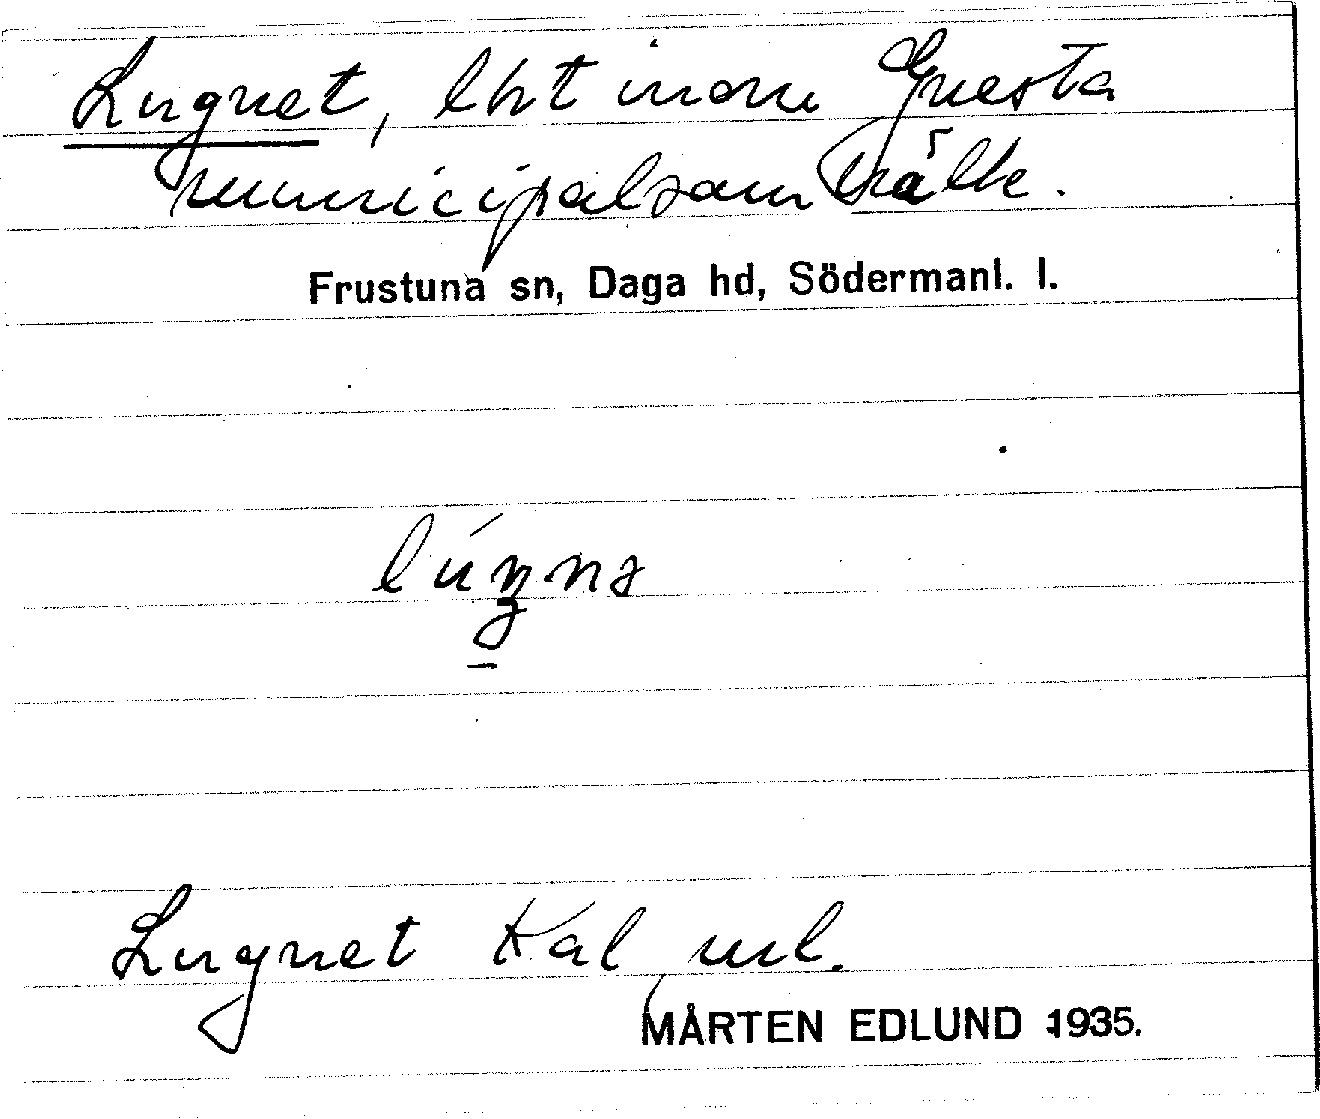 Lugnet, lht inom Gnesta
municipalsamhälle.
Frustuna sn, Daga hd, Södermanl. l.
Lugnet Kal ml.
MÅRTEN EDLUND 1935.